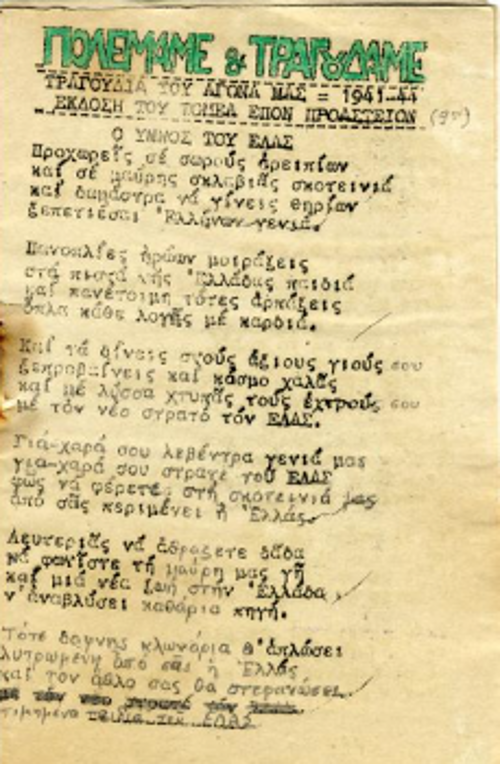 ΠΟΛΕΜΑΜΕ & ΤΡΑΓΟΥΔΑΜΕ
ΤΡΑΓΟΥΔΙΑ ΤΟΥ ΑΓΩΝΑ ΜΑΣ = 1941-44
ΕΚΔΟΣΗ ΤΟΥ ΤΟΜΕΑ ΕΠΟΝ ΠΡΟΑΣΤΕΙΩΝ
Ο ΥΜΝΟΣ ΤΟΥ ΕΛΑΣ
Προχωρεῖς σέ σωρούς ἐρειπίων
καί σέ μαύρης σκλαβιᾶς σκοτεινιά
καί δαμάστρα νά γίνεις θηρίων
ξεπετιέσαι Ἑλλήνων γενιά.
Πανοπλίες ἡρώων μοιράζεις
στά πιστά τῆς Ἑλλάδας παιδιά
καί πανέτοιμη τότες ἁρπάζεις
ὅπλα κάθε λογῆς μέ καρδιά.
Καί τά δίνεις στούς ἄξιους γιούς σου
ξεπροβαίνεις καί κόσμο χαλᾶς
καί μέ λύσσα χτυπᾶς τούς ἐχτρούς σου
μέ τόν νέο στρατό τόν ΕΛΑΣ.
Γιά-χαρά σου λεβέντρα γενιά μας
για-χαρά σου στρατέ τοῦ ΕΛΑΣ
φῶς νά φέρετε στή σκοτεινιά μας
ἀπό σᾶς περιμένει ἡ Ἑλλάς.
Λευτεριᾶς νά ἁδράξετε δᾶδα
νά φωτίστε τή μαύρη μας γῆ
καί μιά νέα ζωή στήν Ἑλλάδα
ν᾿ἀναβλύσει καθάρια πηγή.
Τότε δάφνης κλωνάρια θ᾿ἁπλώσει
λυτρωμένη ἀπό σᾶς ἡ Ἑλλάς
καί τον ἆθλο σας θα στεφανώσει
με τόν νέο στρατό τόν
τιμημένα παιδιά του ΕΛΑΣ